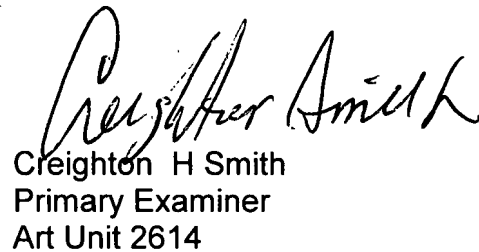 Creighton Smith
Creighton H Smith
Primary Examiner
Art Unit 2614